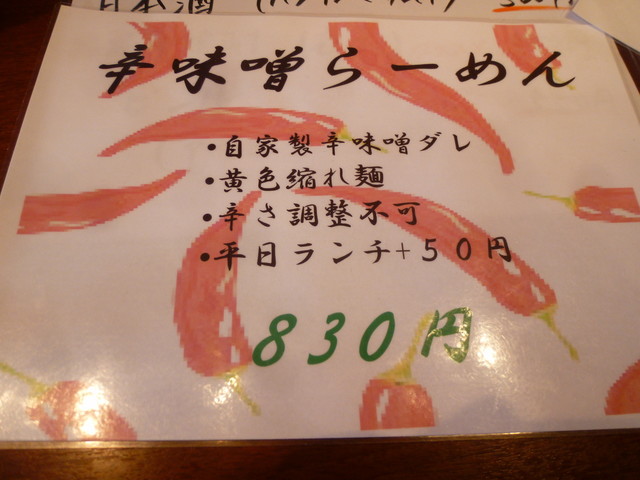 日本酒
辛味噌らーめん
・自家製辛味噌ダレ
・黄色縮れ麺
・辛さ調整不可
・平日ランチ+50円
830円